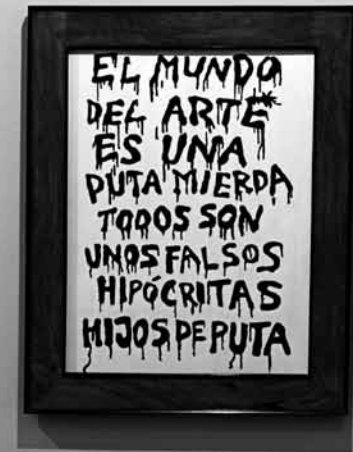 EL MUNDO
DEL ARTE*
ES UNA
PUTA MIERDA
TODOS SON
UNOS FALSOS
HIPÓCRITAS
HIJOS DE PUTA